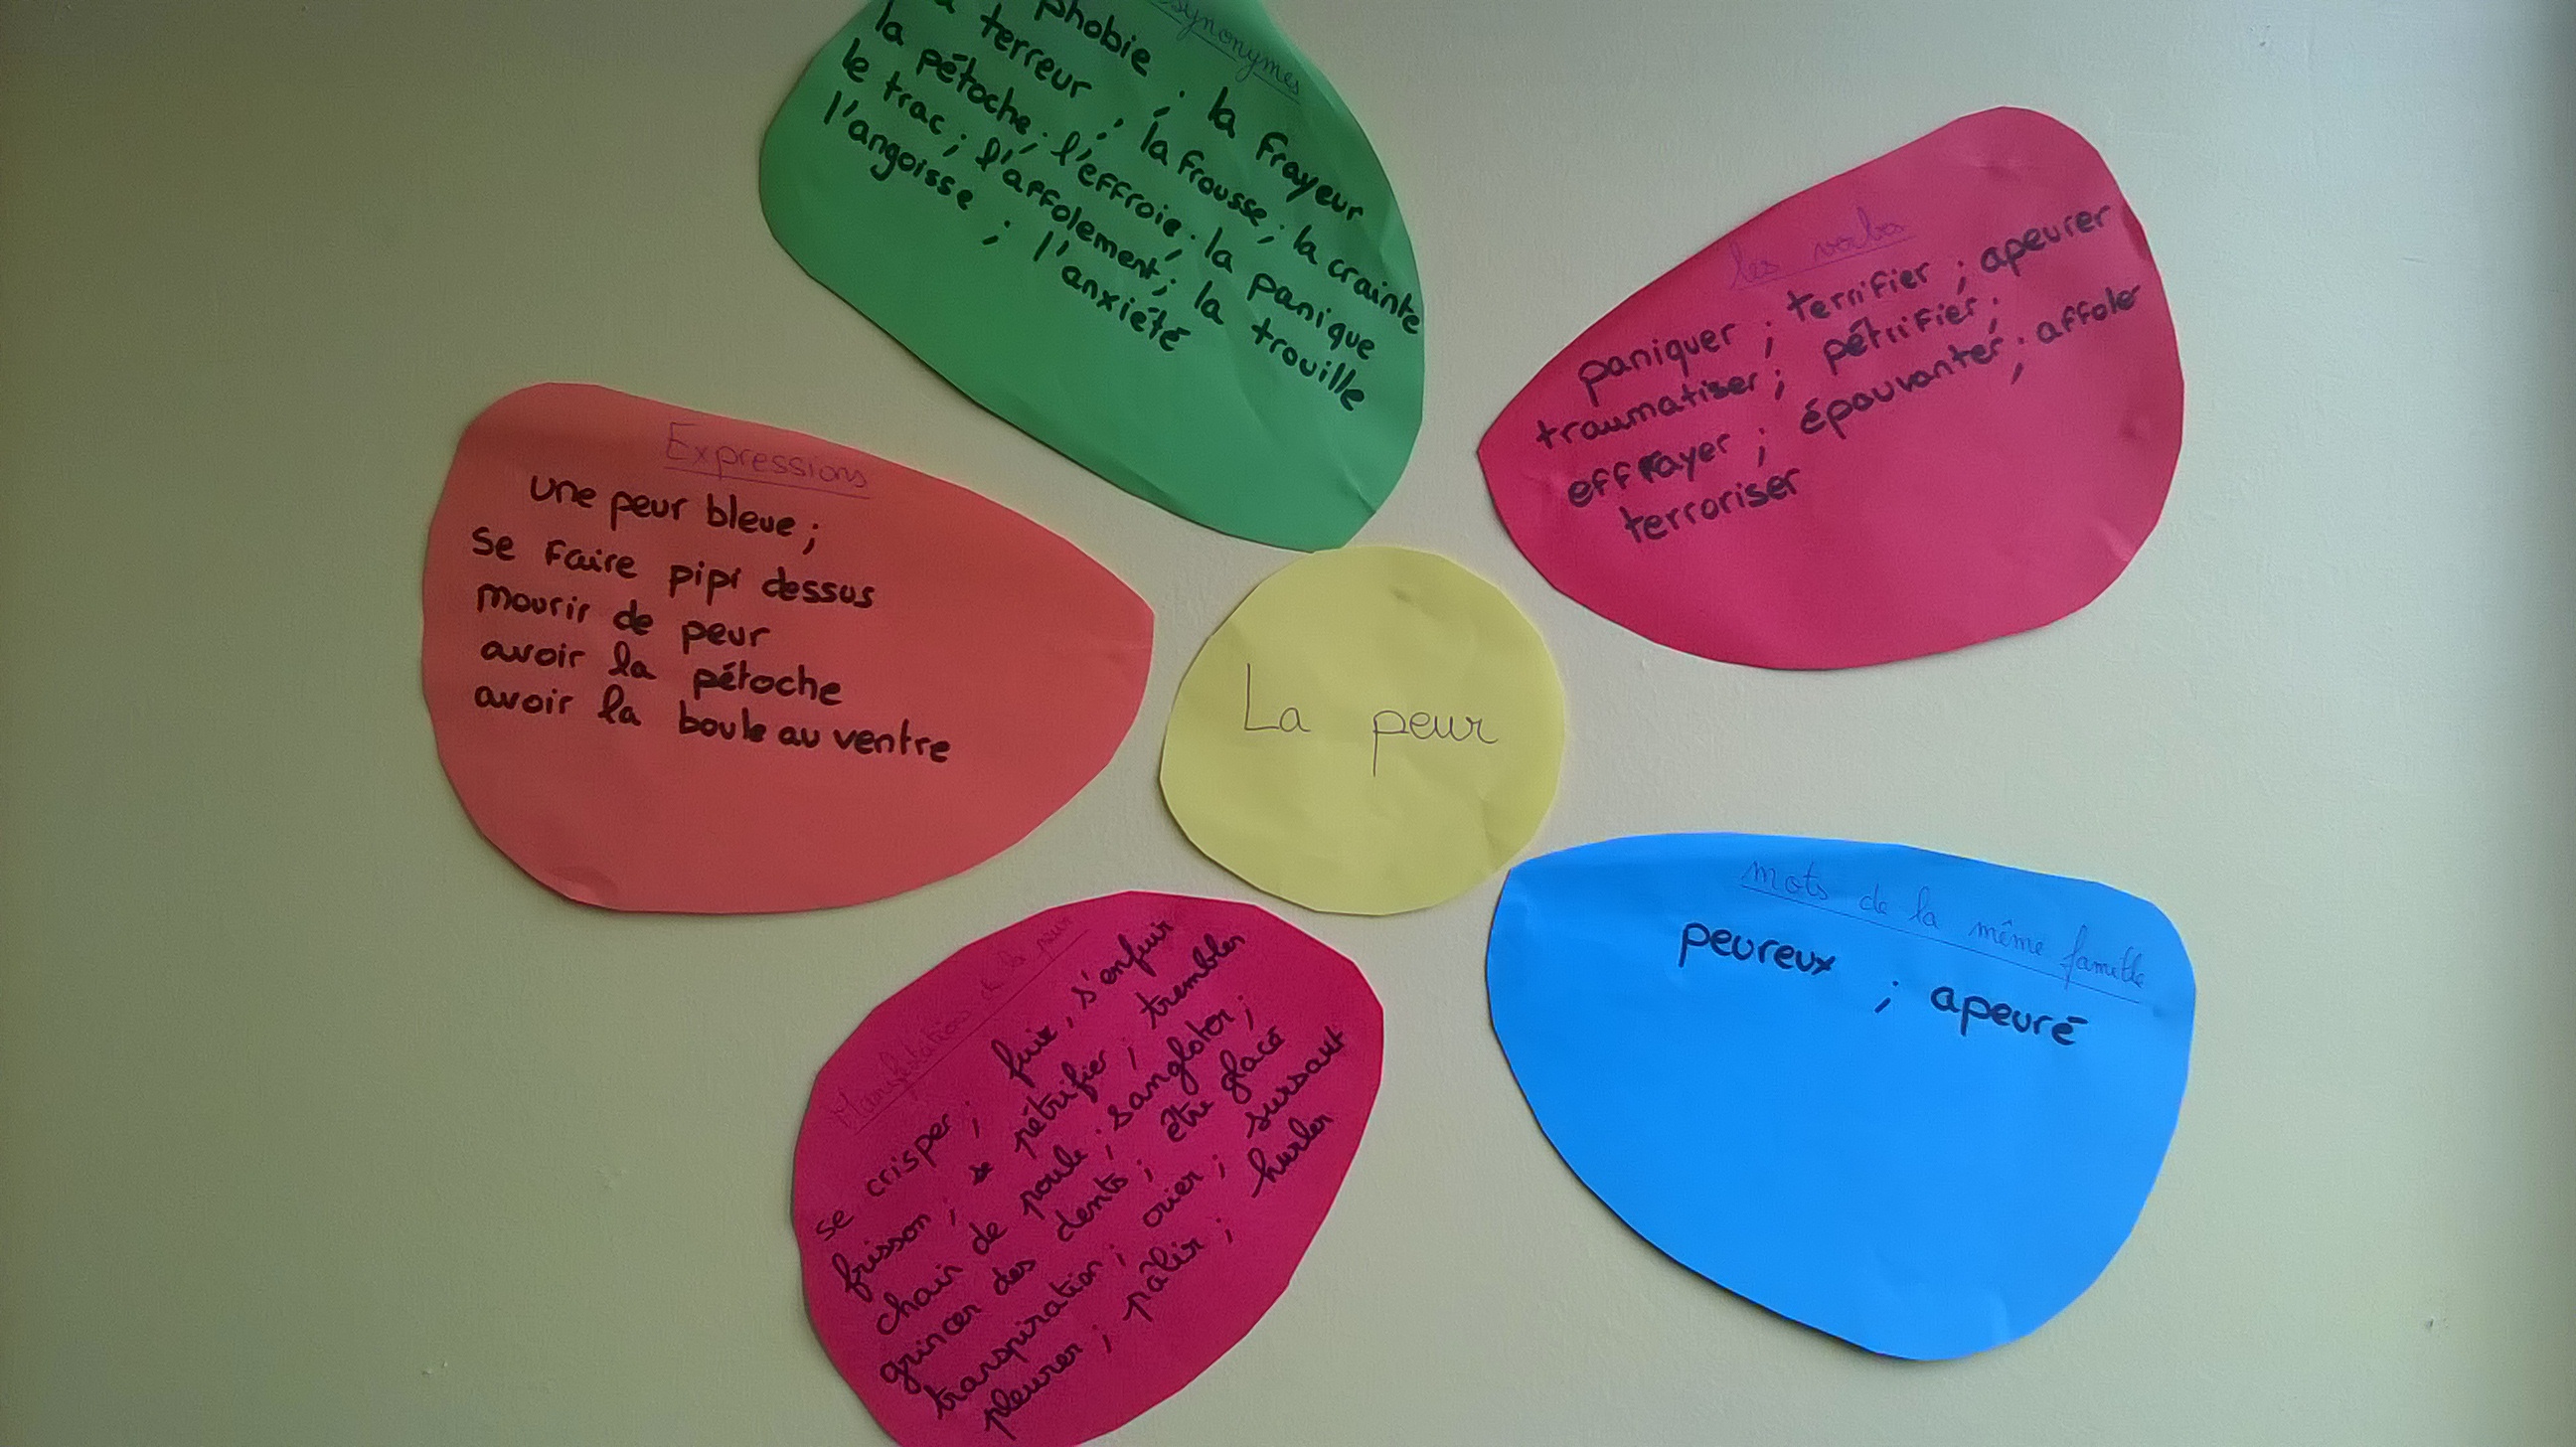 synonymes
phobie ; la frayeur
terreur ; la frousse ; la crainte
la pétoche ; l'effroie ; la panique
le trac ; l'affolement ; la trouille
l'angoisse ; l'anxiété
les verbes
paniquer ; terrifier ; apeurer
traumatiser ; pétrifier ;
effrayer ; épouvanter ; affoler
terroriser
Expressions
une peur bleue ;
se faire pipi dessus
mourir de peur
avoir la pétoche
avoir la boule au ventre
La peur
mots de la même famille
peureux ; apeuré
Manifestations de la peur
se crisper ; fuir, s'enfuir
frisson ; se pétrifier ; trembler
chair de poule ; sangloter ;
grincer des dents ; être glacé
transpiration ; crier ; sursaut
pleurer ; pâlir ; hurler